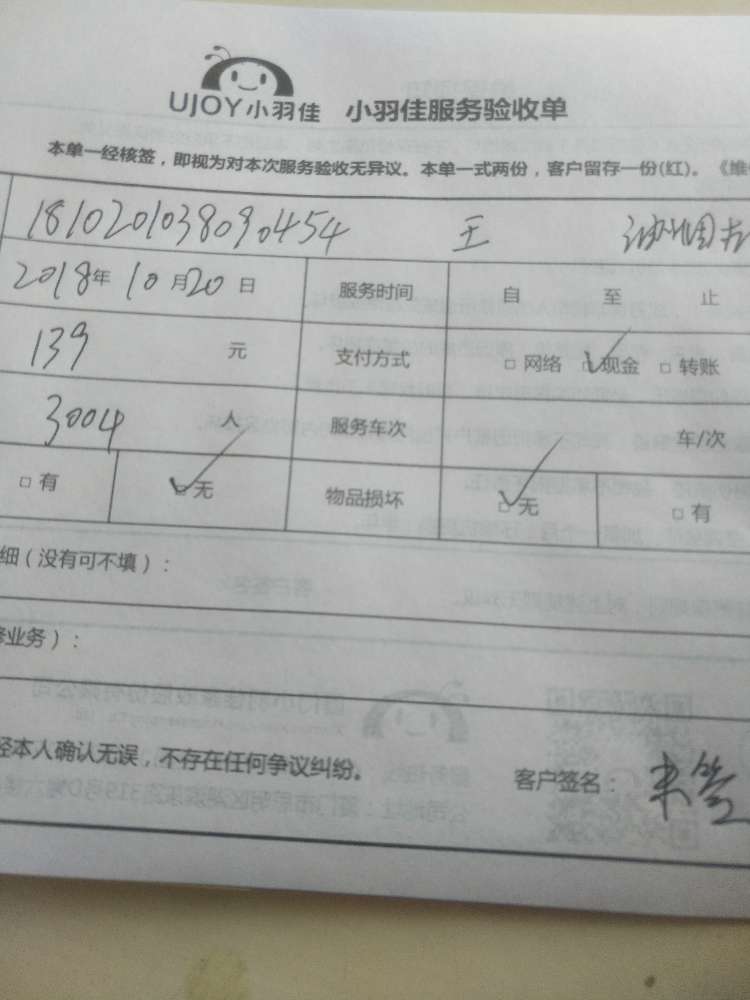 UJOY小羽佳 小羽佳服务验收单
本单一经核签，即视为对本次服务验收无异议。本单一式两份，客户留存一份(红)。《维
1810201038090454 王
2018年 10月20日 服务时间 自 至 止
139 元 支付方式 □ 网络 □ 现金 □ 转账
3004 人 服务车次 年/次
□ 有 □ 无 物品损坏 □ 无 □ 有
细（没有可不填）：
业务）：
经本人确认无误，不存在任何争议纠纷。
客户签名：